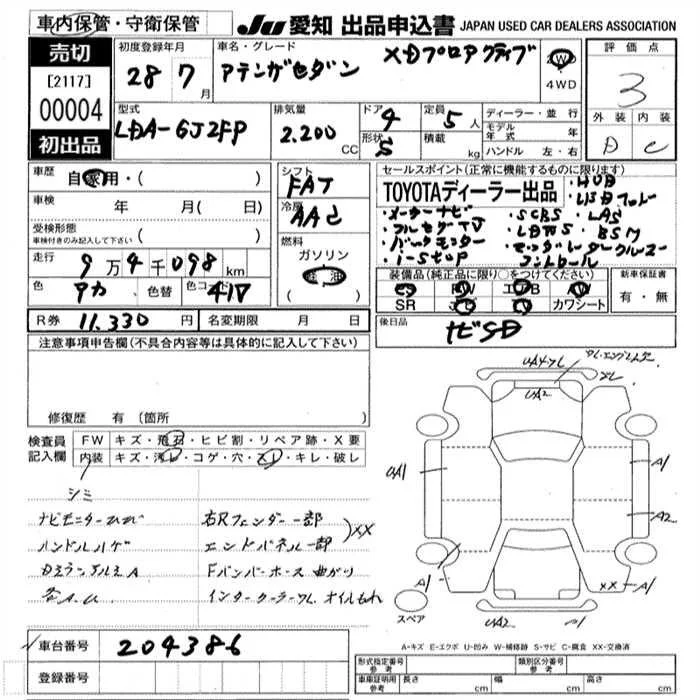 車内保管・守衛保管
JU 愛知 出品申込書 JAPAN USED CAR DEALERS ASSOCIATION
売切
[2117]
00004
初出品
初度登録年月
28 7月
車名・グレード
アテンザセダン XDプロアクティブ
2WD
4WD
評価点
3
外装 内装
D C
型式
LDA-GJ2FP
排気量
2.200 CC
ドア 4
形状 S
定員 5人
積載 kg
ディーラー・並行
モデル年式 年
ハンドル 左・右
車歴 自家用・( )
車検 年 月( 日)
受検形態
車検付きのみ記入して下さい ( )
走行 9万4千098km
色 アカ 色替 色コード 41V
シフト
FAT
冷房
AAC
燃料
ガソリン
( )
セールスポイント(正常に機能するものに限ります)
TOYOTAディーラー出品
・HUD
・メーターナビ ・SCBS ・LAS
・フルセグTV ・BSM
・バックモニター
・i-stop コントロール
装備品(純正品に限り○をつけてください)
SR カワシート
新車保証書
有・無
R券 11,330円 名変期限 月 日
後日品
ナビSD
注意事項申告欄(不具合内容等は具体的に記入して下さい)
修復歴 有(箇所 )
検査員記入欄
FW キズ・飛石・ヒビ割・リペア跡・X要
内装 キズ・汚レ・コゲ・穴・スレ・キレ・破レ
シミ
ナビモニターひび 右Rフェンダー一部
ハンドルハゲ エンドパネル一部 )XX
Fバンパーホース曲がり
各A.U インタークーラーフル オイルもれ
UA2
UA1
A1
A2
A1
XX A1
UA2
スペア
A-キズ E-エクボ U-凹み W-補修跡 S-サビ C-腐食 XX-交換済
車台番号 204386
登録番号
形式指定番号 参考
類別区分番号 参考
車庫証明用 参考 長さ cm 幅 cm 高さ cm